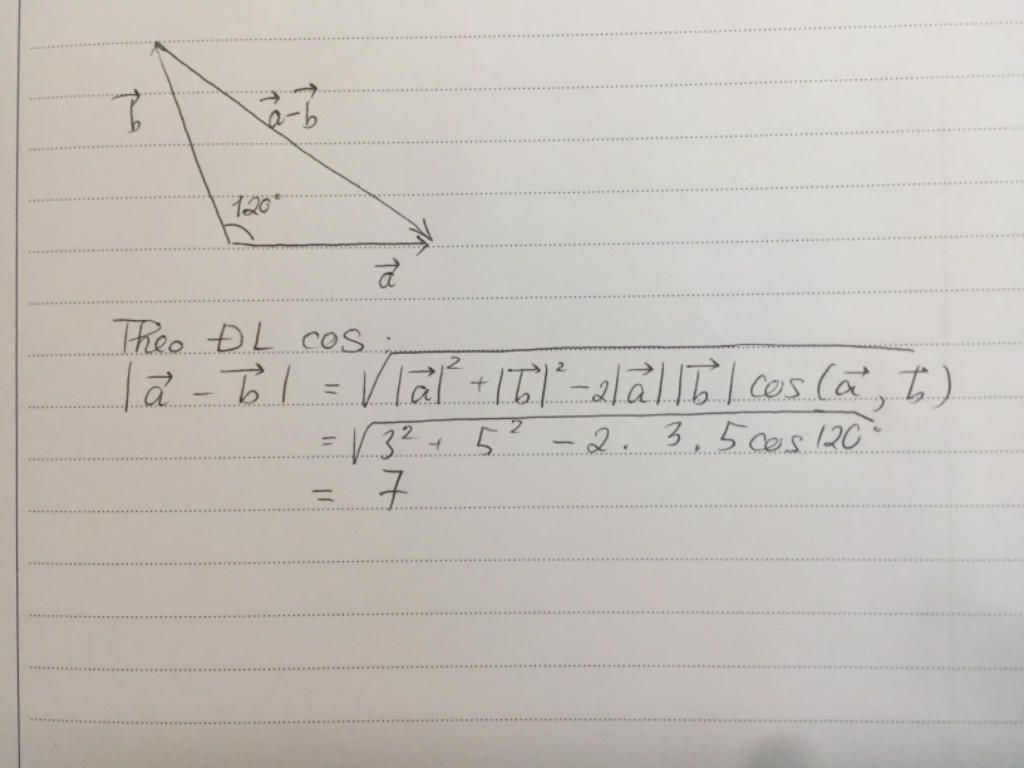 b⃗
a⃗-b⃗
120°
a⃗
Theo ĐL cos:
|a⃗ - b⃗| = √(|a⃗|² + |b⃗|² - 2|a⃗||b⃗| cos(a⃗, b⃗))
= √(3² + 5² - 2. 3. 5 cos 120°)
= 7